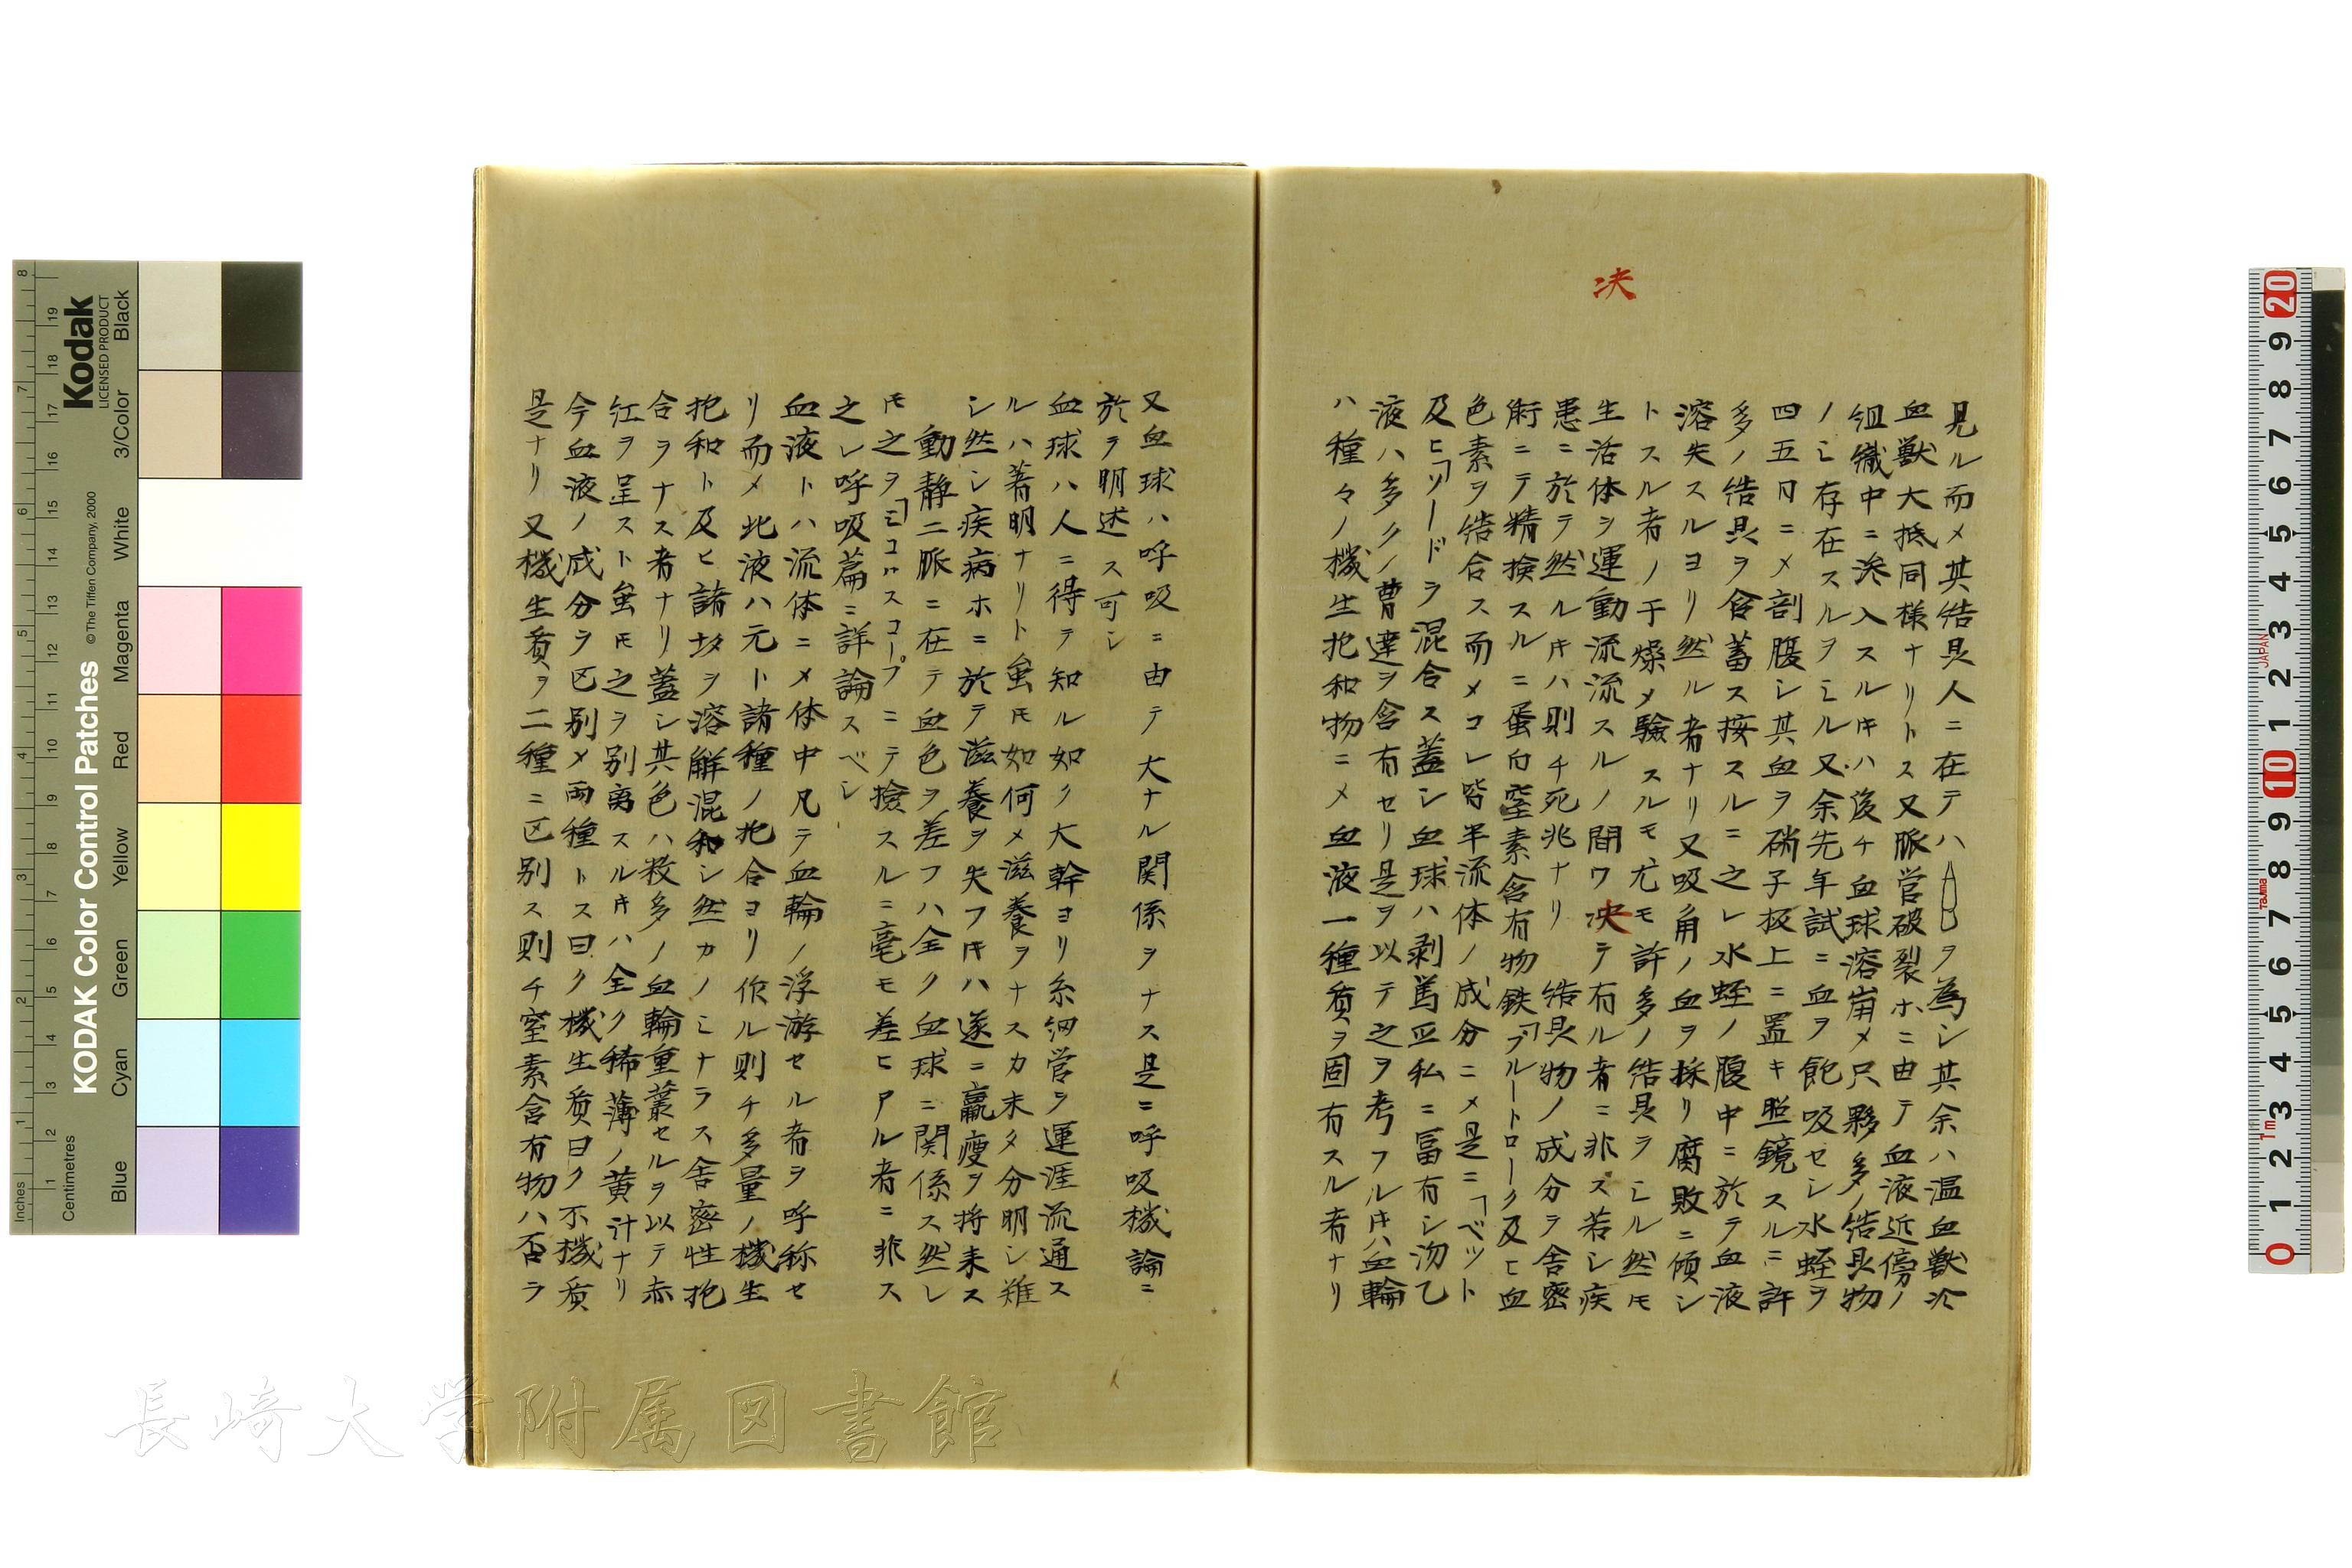 決
見ル而メ其結晶人ニ在テハヲ為シ其余ハ温血獣冷
血獣大抵同様ナリトス又脈管破裂ホニ由テ血液近傍ノ
組織中ニ滲入スルキハ後チ血球溶崩メ只夥多ノ結晶物
ノミ存在スルヲミル又余先年試ニ血ヲ飽吸セシ水蛭ヲ
四五日ニメ剖腹シ其血ヲ硝子板上ニ置キ照鏡スルニ許
多ノ結晶ヲ含蓄ス按スルニ之レ水蛭ノ腹中ニ於テ血液
溶失スルヨリ然ル者ナリ又吸角ノ血ヲ採リ腐敗ニ傾シ
トスル者ノ干燥メ驗スルモ尤モ許多ノ結晶ヲミル然モ
生活体ヲ運動流流スルノ間ワ決テ有ル者ニ非ス若シ疾
患ニ於テ然ルキハ則チ死兆ナリ 結晶物ノ成分ヲ舎密
術ニテ精撿スルニ蛋白窒素含有物鉄「ブルートローク及ヒ血
色素ヲ結合ス而メコレ皆半流体ノ成分ニメ是ニ「ベット
及ヒ「ソードヲ混合ス蓋シ血球ハ剥篤亞私ニ冨有シ沕乙
液ハ多クノ曹達ヲ含有セリ是ヲ以テ之ヲ考フルキハ血輪
ハ種々ノ機生抱和物ニメ血液一種質ヲ固有スル者ナリ
又血球ハ呼吸ニ由テ大ナル関係ヲナス是ニ呼吸機論ニ
於ヲ明述ス可シ
血球ハ人ニ得テ知ル如ク大幹ヨリ糸細管ヲ運涯流通ス
ルハ著明ナリト虽モ如何メ滋養ヲナスカ未タ分明シ難
シ然シ疾病ホニ於テ滋養ヲ失フキハ遂ニ羸瘦ヲ将来ス
動静二脈ニ在テ血色ヲ差フハ全ク血球ニ関係ス然レ
モ之ヲ「ミコロスコープニテ撿スルニ毫モ差ヒアル者ニ非ス
之レ呼吸篇ニ詳論スベシ
血液トハ流体ニメ体中凡テ血輪ノ浮游セル者ヲ呼称セ
リ而メ此液ハ元ト諸種ノ抱合ヨリ作ル則チ多量ノ機生
抱和ト及ヒ諸塩ヲ溶解混和シ然カノミナラス舎密性抱
合ヲナス者ナリ蓋シ其色ハ数多ノ血輪重叢セルヲ以テ赤
红ヲ呈スト虽モ之ヲ別离スルキハ全ク稀薄ノ黄汁ナリ
今血液ノ成分ヲ区別メ両種トス曰ク機生質曰ク不機質
是ナリ又機生質ヲ二種ニ区別ス則チ窒素含有物ハ否ラ
KODAK Color Control Patches
© The Tiffen Company, 2000
Kodak
LICENSED PRODUCT
Inches
Centimetres
Blue
Cyan
Green
Yellow
Red
Magenta
White
3/Color
Black
JAPAN
長崎大学附属図書館